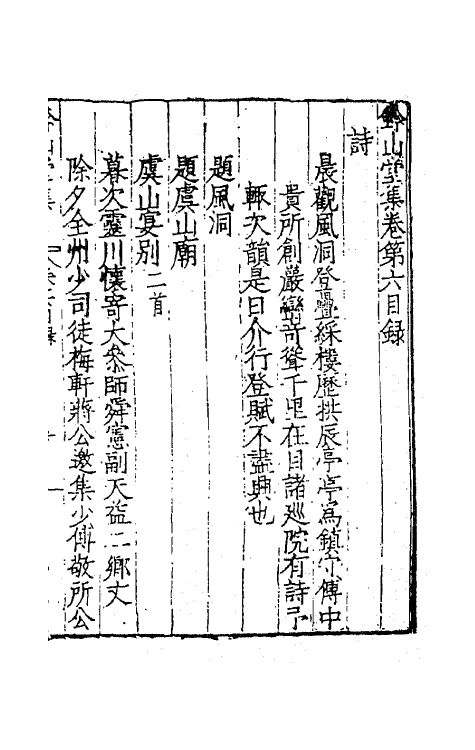 鈐山堂集卷第六目録
詩
晨觀風洞登疊綵樓歷拱辰亭亭爲鎮守傅中
貴所創巖巒竒聳千里在目諸廵院有詩予
輙次韻是日介行登賦不盡興也
題風洞
題虞山廟
虞山宴别二首
暮次靈川懷寄大叅師舜憲副天益二鄉丈
除夕全州少司徒梅軒蔣公邀集少傅敬所公